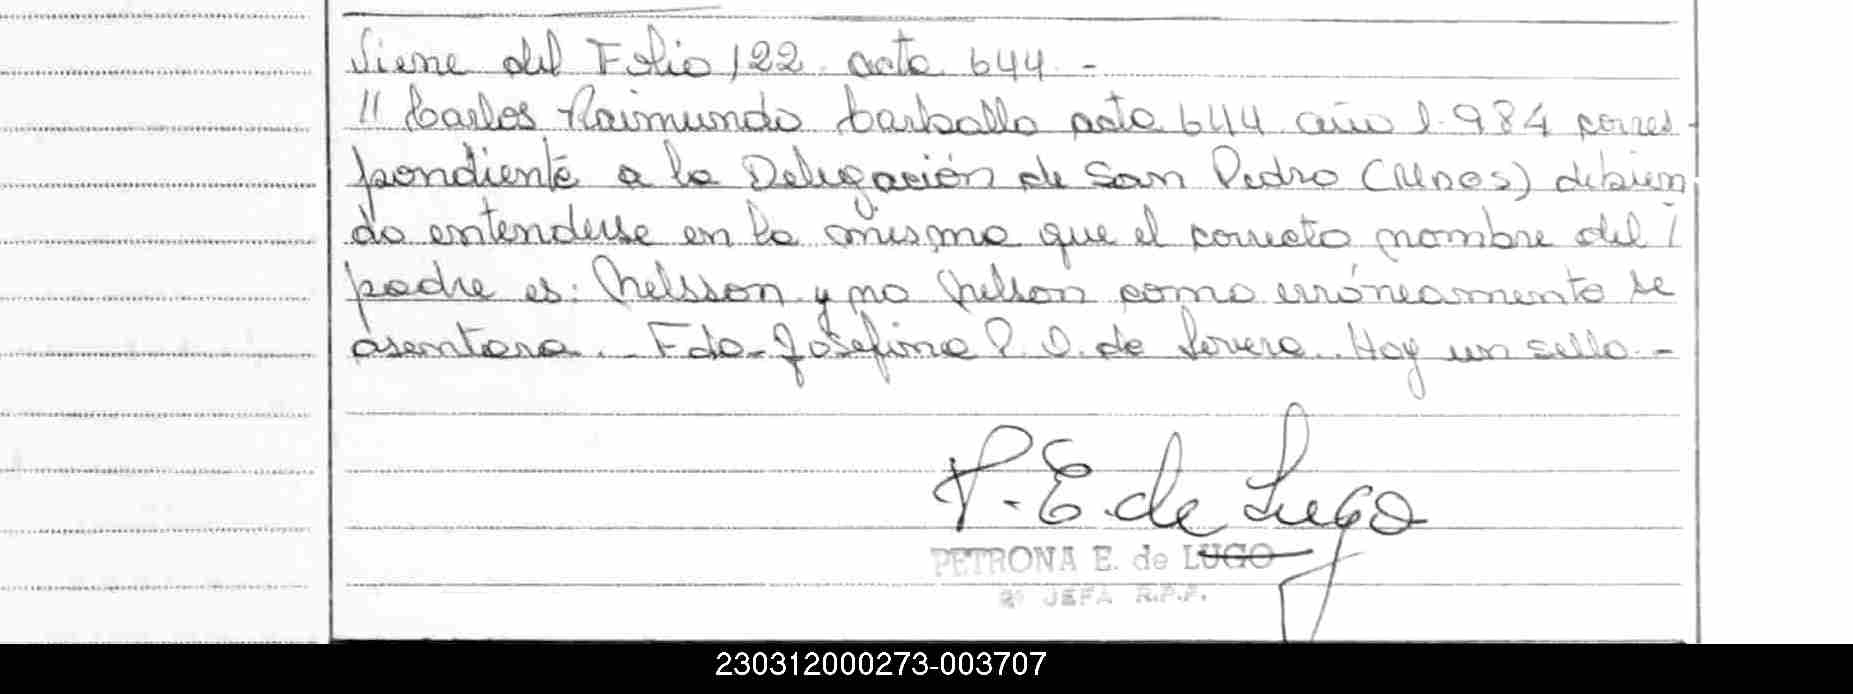 Viene del Folio 122 acta 644 -
// Carlos Raimundo Carballo acta 644 año 1.984 corres-
pondiente a la Delegación de San Pedro (Mnes) debien
do entenderse en la misma que el correcto nombre del
padre es: Nelsson y no Nelson como erróneamente se
asentara. - Fdo. Josefina P. D. de Hay un sello. -
P. E. de Lugo
PETRONA E. de LUGO
2º JEFA R.P.P.
230312000273-003707